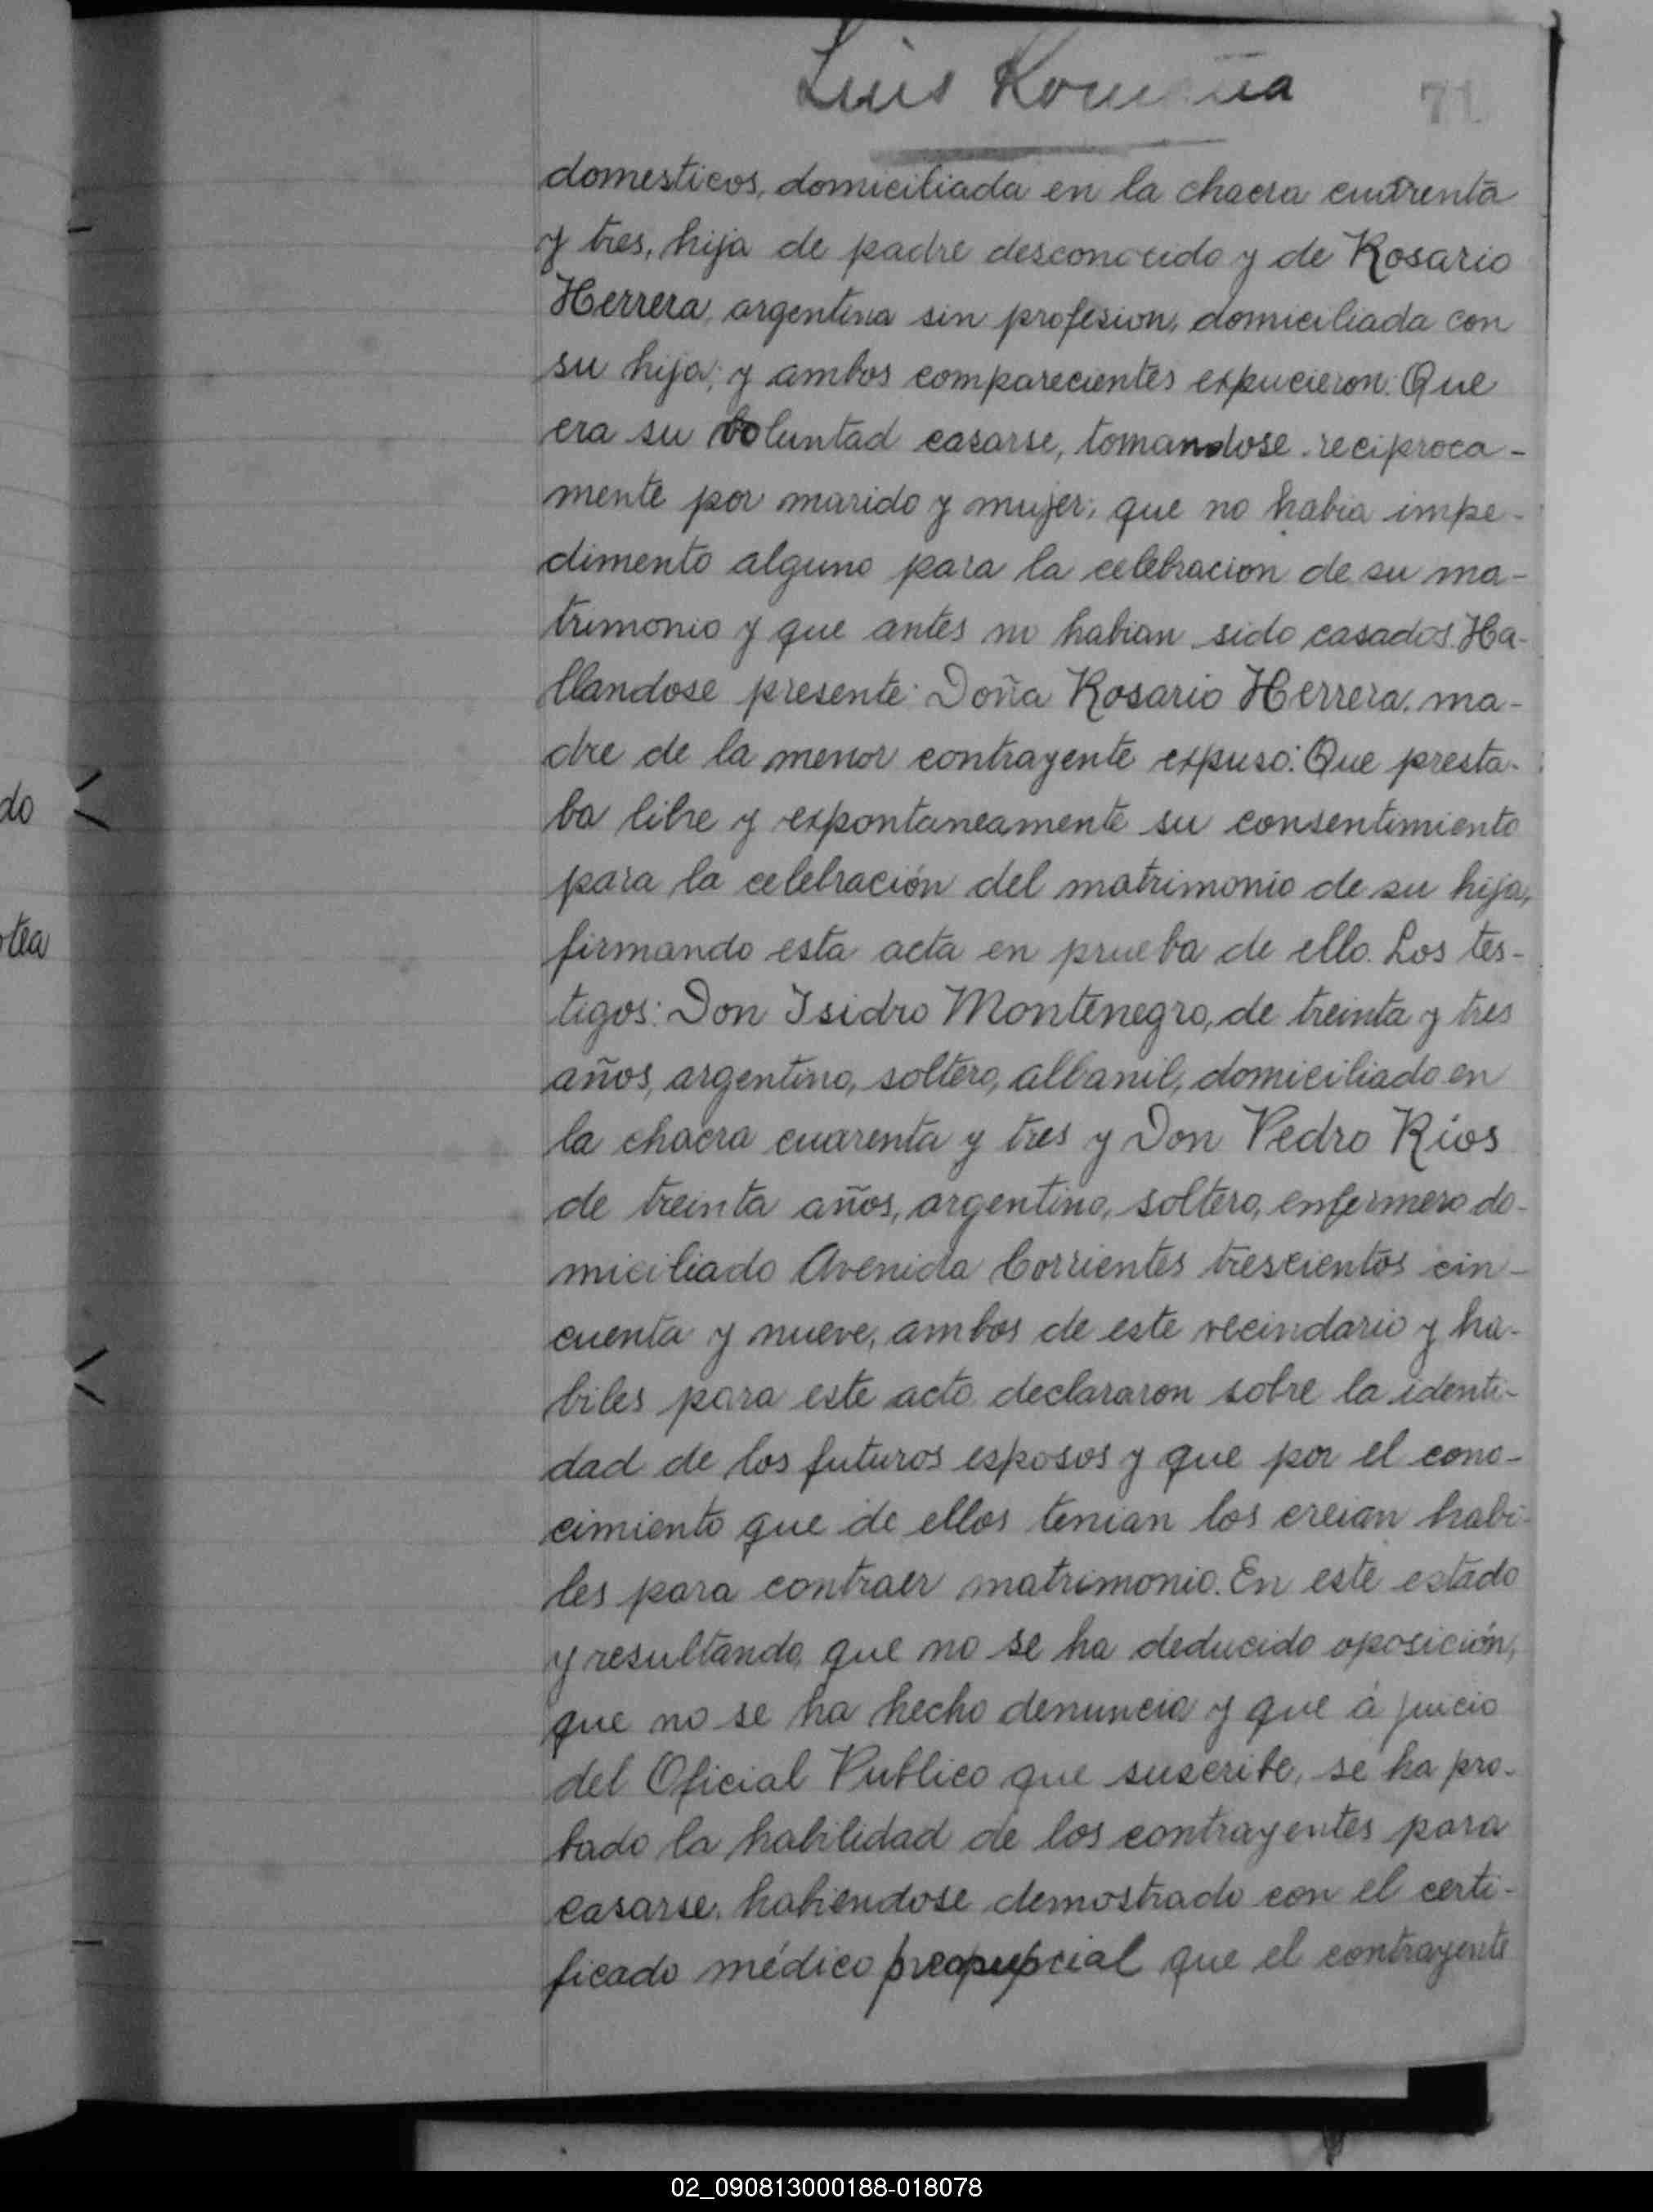 Luis
71
domesticos, domiciliada en la chacra cuarenta
y tres, hija de padre desconocido y de Rosario
Herrera, argentina sin profesion, domiciliada con
su hija; y ambos comparecientes expucieron: Que
era su voluntad casarse, tomandose reciproca-
mente por marido y mujer; que no habia impe-
dimento alguno para la celebracion de su ma-
trimonio y que antes no habian sido casados. Ha-
llandose presente: Doña Rosario Herrera, ma-
dre de la menor contrayente expuso: Que presta-
do
ba libre y expontaneamente su consentimiento
para la celebración del matrimonio de su hija,
tea
firmando esta acta en prueba de ello. Los tes-
tigos: Don Isidro Montenegro, de treinta y tres
años, argentino, soltero, albanil, domiciliado en
la chacra cuarenta y tres y Don Pedro Ríos
de treinta años, argentino, soltero, enfermero do-
miciliado Avenida Corrientes trescientos cin-
cuenta y nueve, ambos de este vecindario y ha-
biles para este acto declararon sobre la identi-
dad de los futuros esposos y que por el cono-
cimiento que de ellos tenian los creian habi-
les para contraer matrimonio. En este estado
y resultando que no se ha deducido oposición,
que no se ha hecho denuncia y que á juicio
del Oficial Publico que suscribe, se ha pro-
bado la habilidad de los contrayentes para
casarse, habiendose demostrado con el certi-
ficado médico que el contrayente
02_090813000188-018078